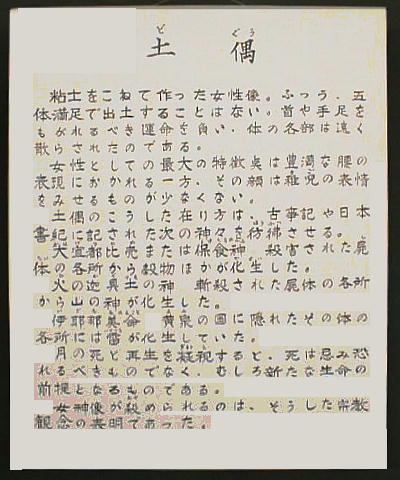 土偶
どぐう
粘土をこねて作った女性像。ふつう、五
体満足で出土することはない。首や手足を
もがれるべき運命を負い、体の各部は遠く
散らされたのである。
女性としての最大の特徴は豊満な腰の
表現におかれる一方、その顔はの表情
をみせるものが少なくない。
土偶のこうした在り方は、古事記や日本
書紀に記された次の神々を彷彿させる。
大宜都比売 殺害された屍
体各所から穀物が化生した。
火の迦具土 斬殺された屍体の各所
から山の神が化生した。
伊耶那美命 黄泉の国に隠れたその体の
各所に雷が化生していた。
月の死と再生を凝視すると、死は忌み恐
れるべきものでなく、むしろ新たな生命の
前提となるものである。
女神像が殺められるのは、そうした宗教
観念の表明であった。